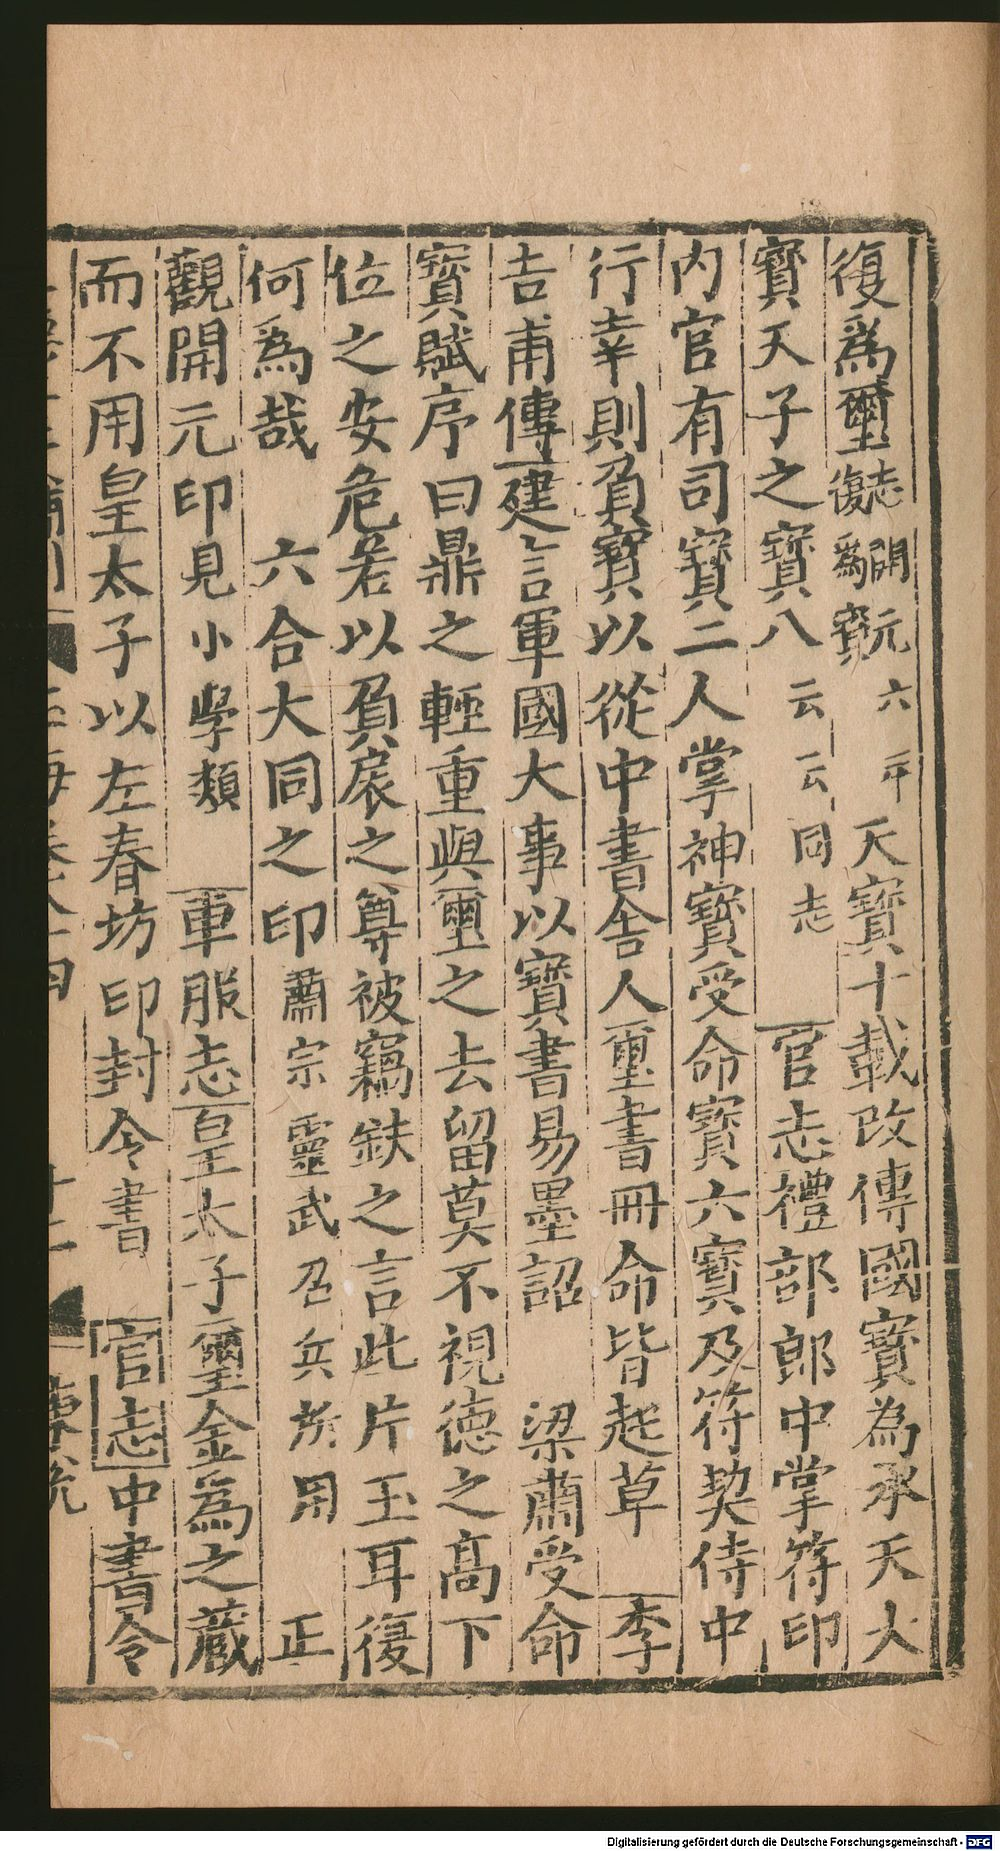 復爲璽志開元六年復爲寳天寳十載改傳國寳為承天大
寳天子之寳八云云同志官志禮部郎中掌符印
内官有司寳二人掌神寳受命寳六寳及符契侍中
行幸則負寳以從中書舍人璽書冊命皆起草李
吉甫傳建言軍國大事以寳書易墨詔梁蕭受命
寳賦序曰鼎之輕重與璽之去留莫不視徳之髙下
位之安危若以負扆之尊被竊鈇之言此片玉耳復
何爲哉六合大同之印蕭宗靈武召兵所用正
觀開元印見小學類車服志皇太子璽金爲之藏
而不用皇太子以左春坊印封令書官志中書令